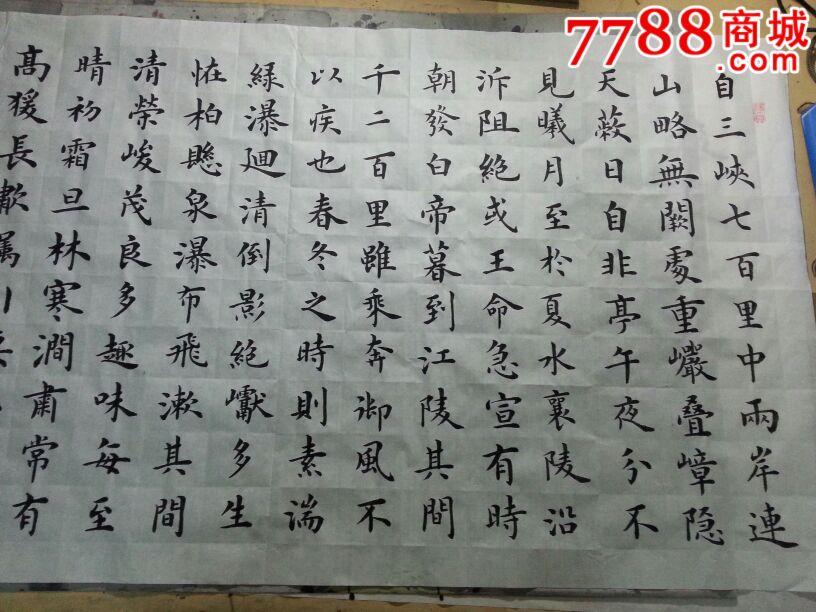 7788商城
自三峽七百里中兩岸連
山略無闕處重巖叠嶂隐
天蔽日自非亭午夜分不
見曦月至於夏水襄陵沿
泝阻絕或王命急宣有時
朝發白帝暮到江陵其間
千二百里雖乘奔御風不
以疾也春冬之時則素湍
緑瀑廻清倒影絕巘多生
恠柏懸泉瀑布飛漱其間
清榮峻茂良多趣味每至
晴初霜旦林寒澗肅常有
高猨長歗